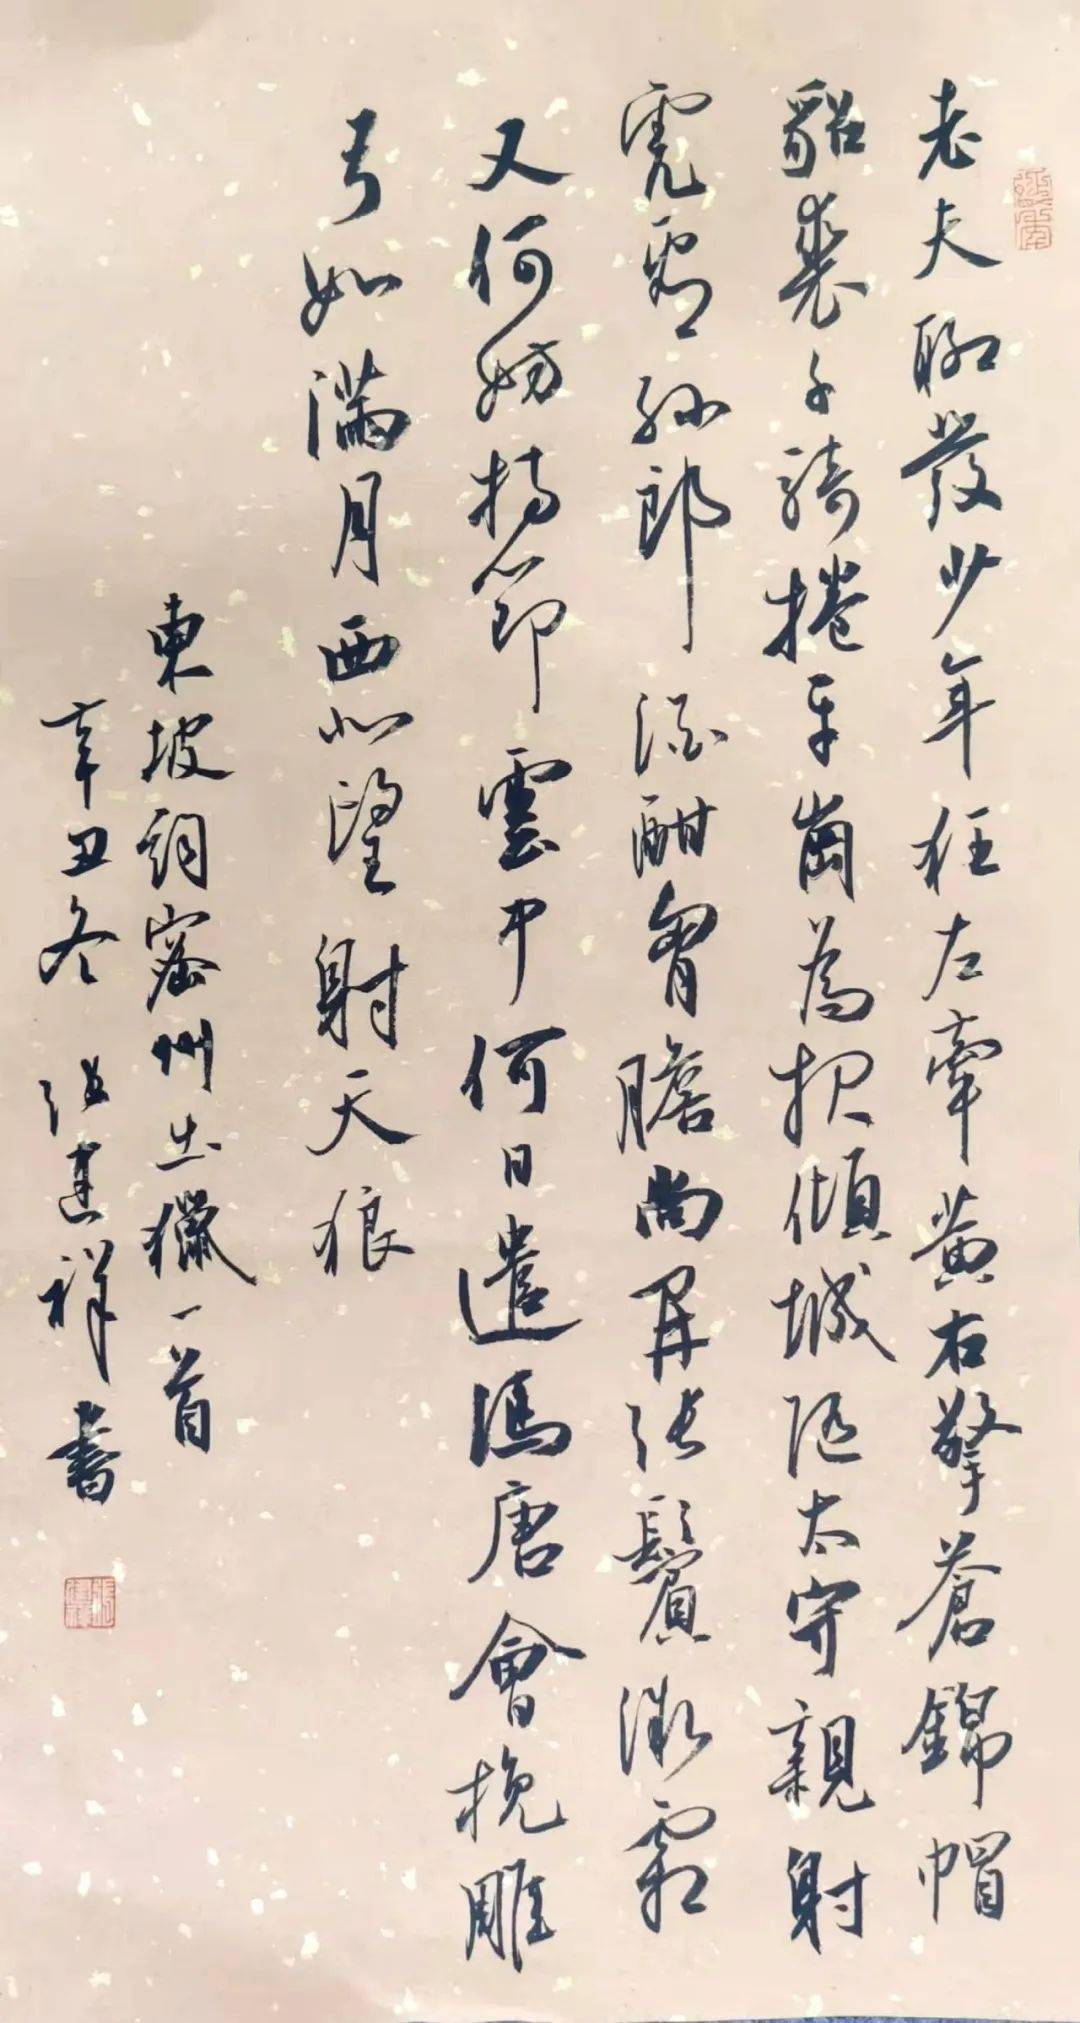 老夫聊發少年狂左牽黃右擎蒼錦帽
貂裘千騎捲平崗為報傾城隨太守親射
虎看孫郎酒酣胷膽尚開張鬢微霜
又何妨持節雲中何日遣馮唐會挽雕
弓如滿月西北望射天狼
東坡詞密州出獵一首
辛丑冬張建祥書